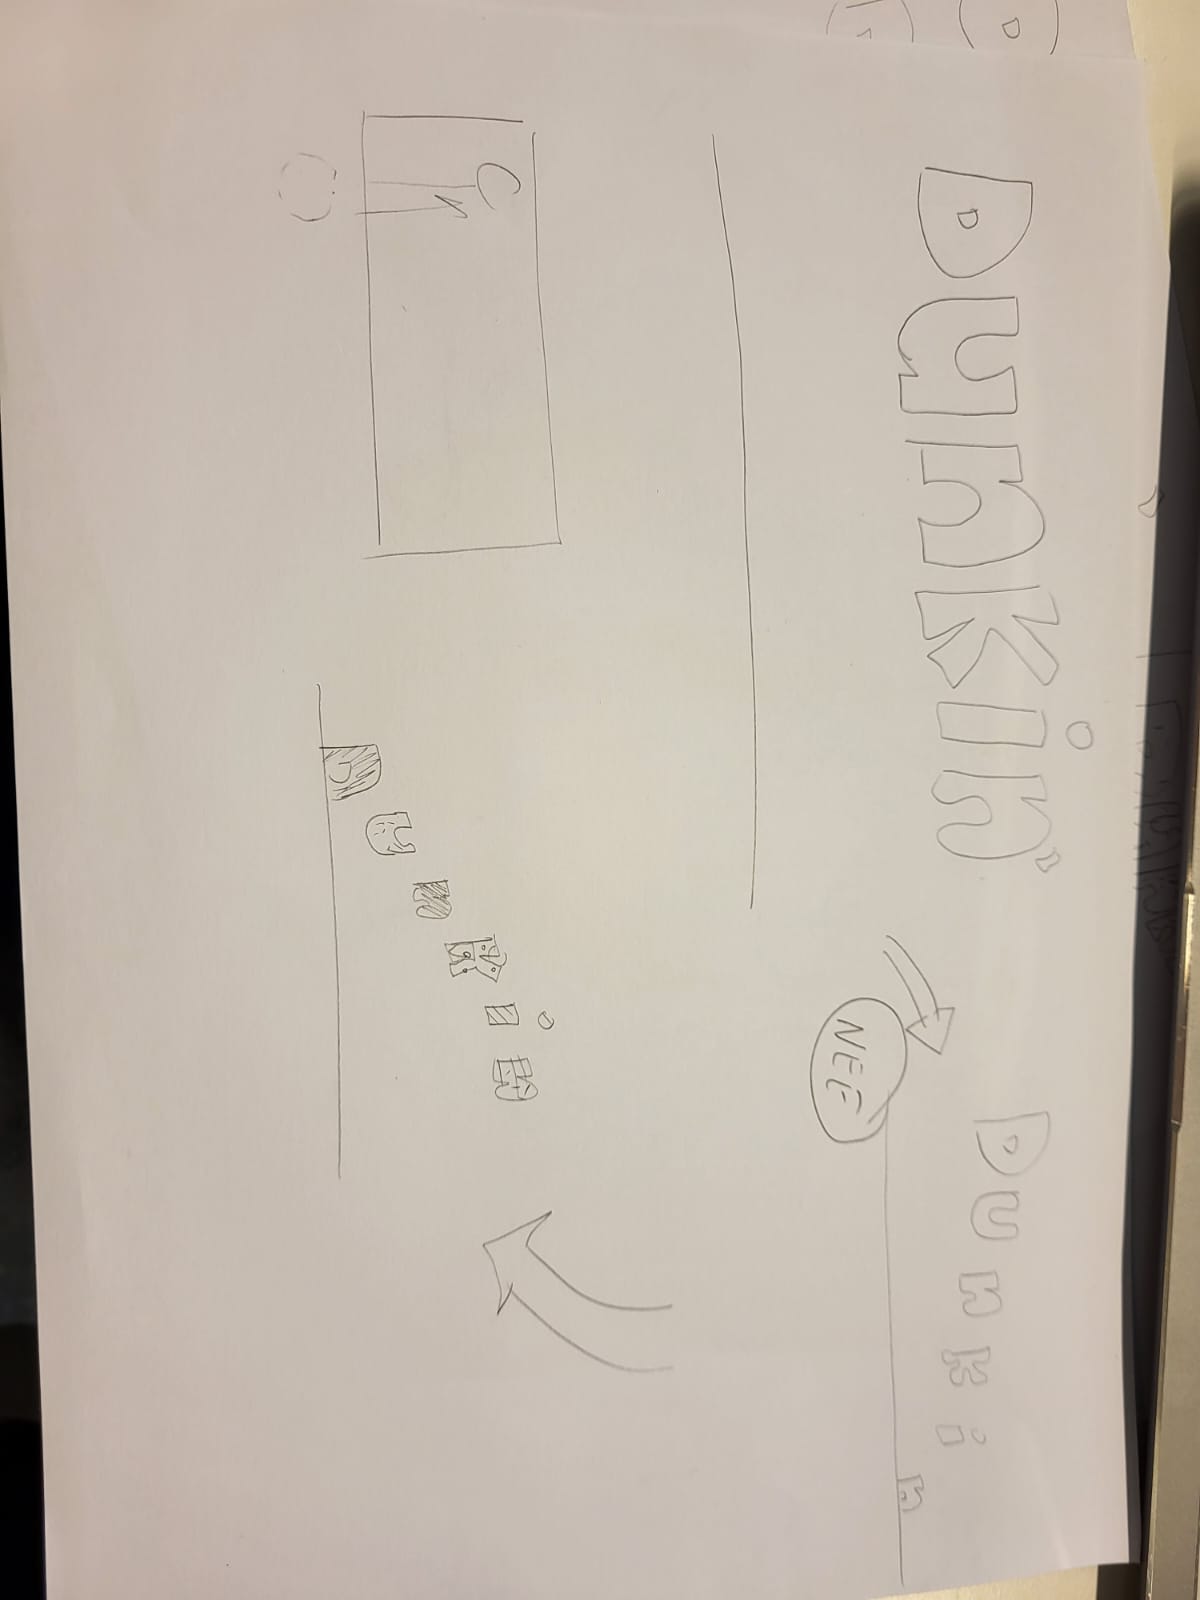 Dunkin'
Dunkin
NEE
Dunkin